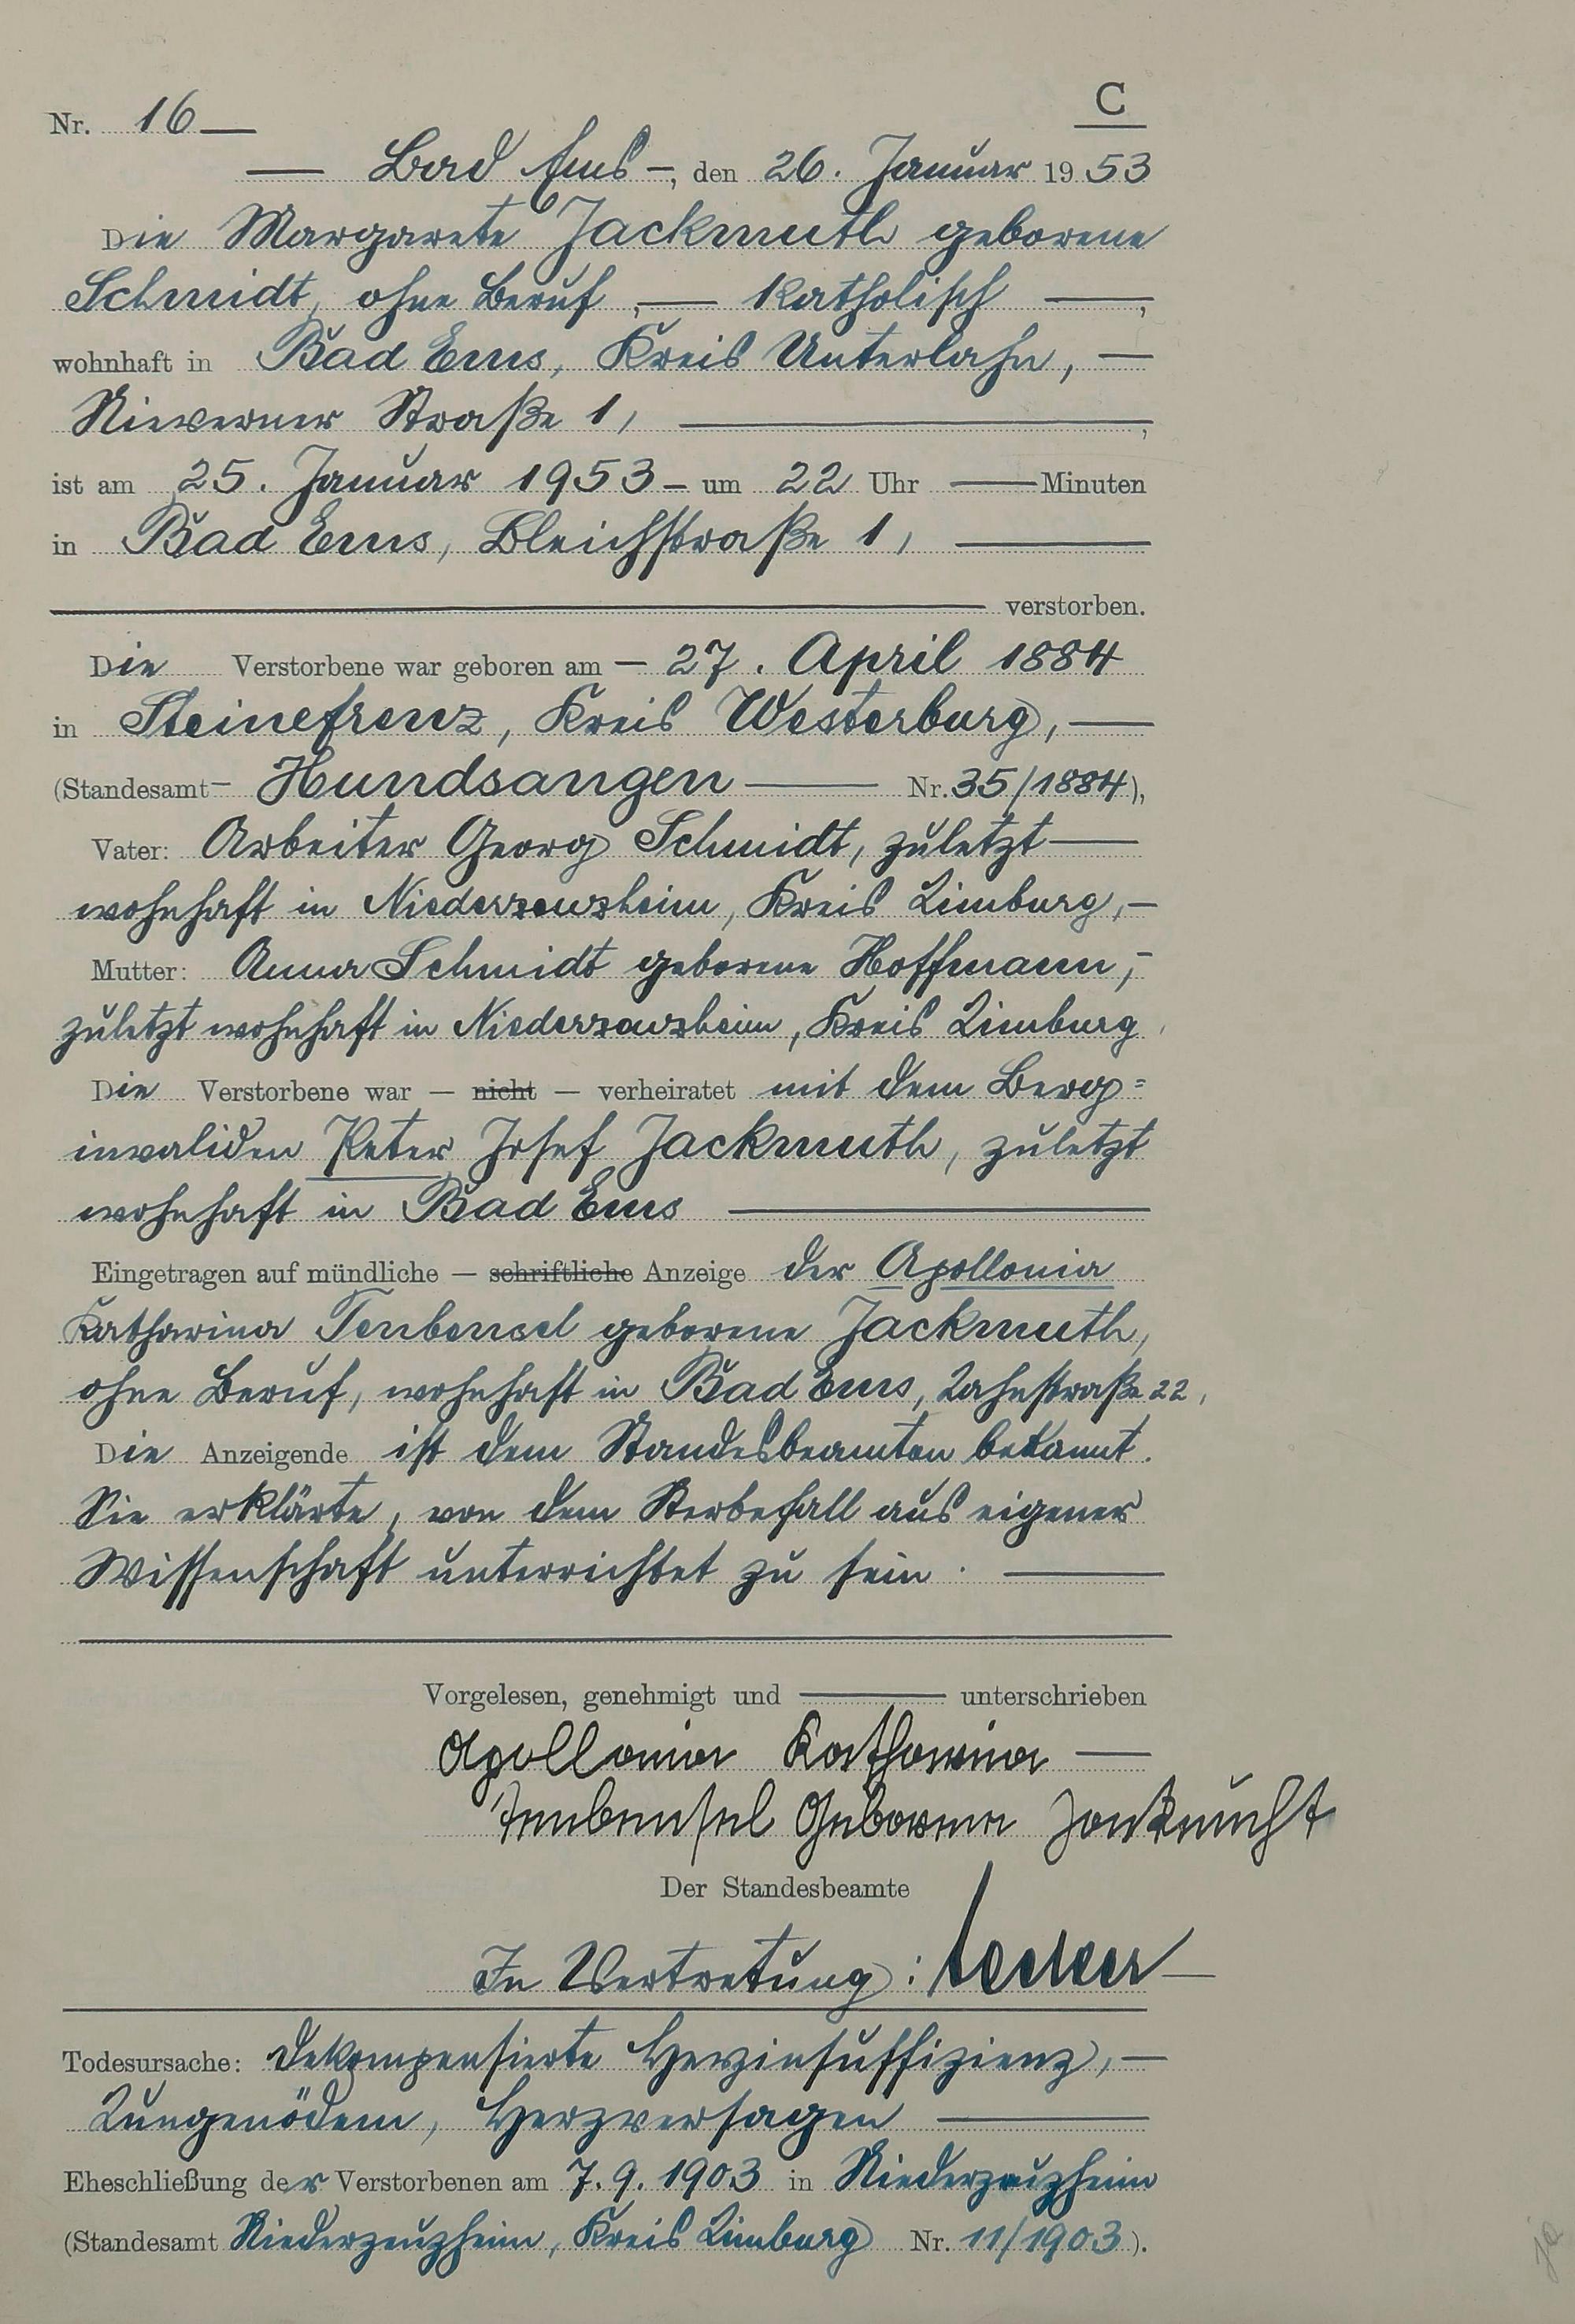 C
Nr. 16 —
— Bad Ems —, den 26. Januar 1953
Die Margarete Jackmuth geborene
Schmidt, ohne Beruf, — katholisch —,
wohnhaft in Bad Ems, Kreis Unterlahn, —
Nieverner Straße 1, —,
ist am 25. Januar 1953 — um 22 Uhr — Minuten
in Bad Ems, Bleichstraße 1, —
— verstorben.
Die Verstorbene war geboren am — 27. April 1884
in Steinefrenz, Kreis Westerburg, —
(Standesamt — Hundsangen — Nr. 35/1884),
Vater: Arbeiter Georg Schmidt, zuletzt —
wohnhaft in Niederzeuzheim, Kreis Limburg, —
Mutter: Anna Schmidt geborene Hoffmann, —
zuletzt wohnhaft in Niederzeuzheim, Kreis Limburg,
Die Verstorbene war — nicht — verheiratet mit dem Berg=
invaliden Peter Josef Jackmuth, zuletzt
wohnhaft in Bad Ems —
Eingetragen auf mündliche — schriftliche Anzeige der Apollonia
Katharina Tenbensel geborene Jackmuth,
ohne Beruf, wohnhaft in Bad Ems, Lahnstraße 22,
Die Anzeigende ist dem Standesbeamten bekannt.
Sie erklärte, von dem Sterbefall aus eigener
Wissenschaft unterrichtet zu sein. —
Vorgelesen, genehmigt und — unterschrieben
Apollonia Katharina —
Tenbensel Geborene
Der Standesbeamte
In Vertretung:
Todesursache: Dekompensierte Herzinsuffizienz, —
Lungenödem, Herzversagen —
Eheschließung der Verstorbenen am 7.9.1903 in Niederzeuzheim
(Standesamt Niederzeuzheim, Kreis Limburg Nr. 11/1903).